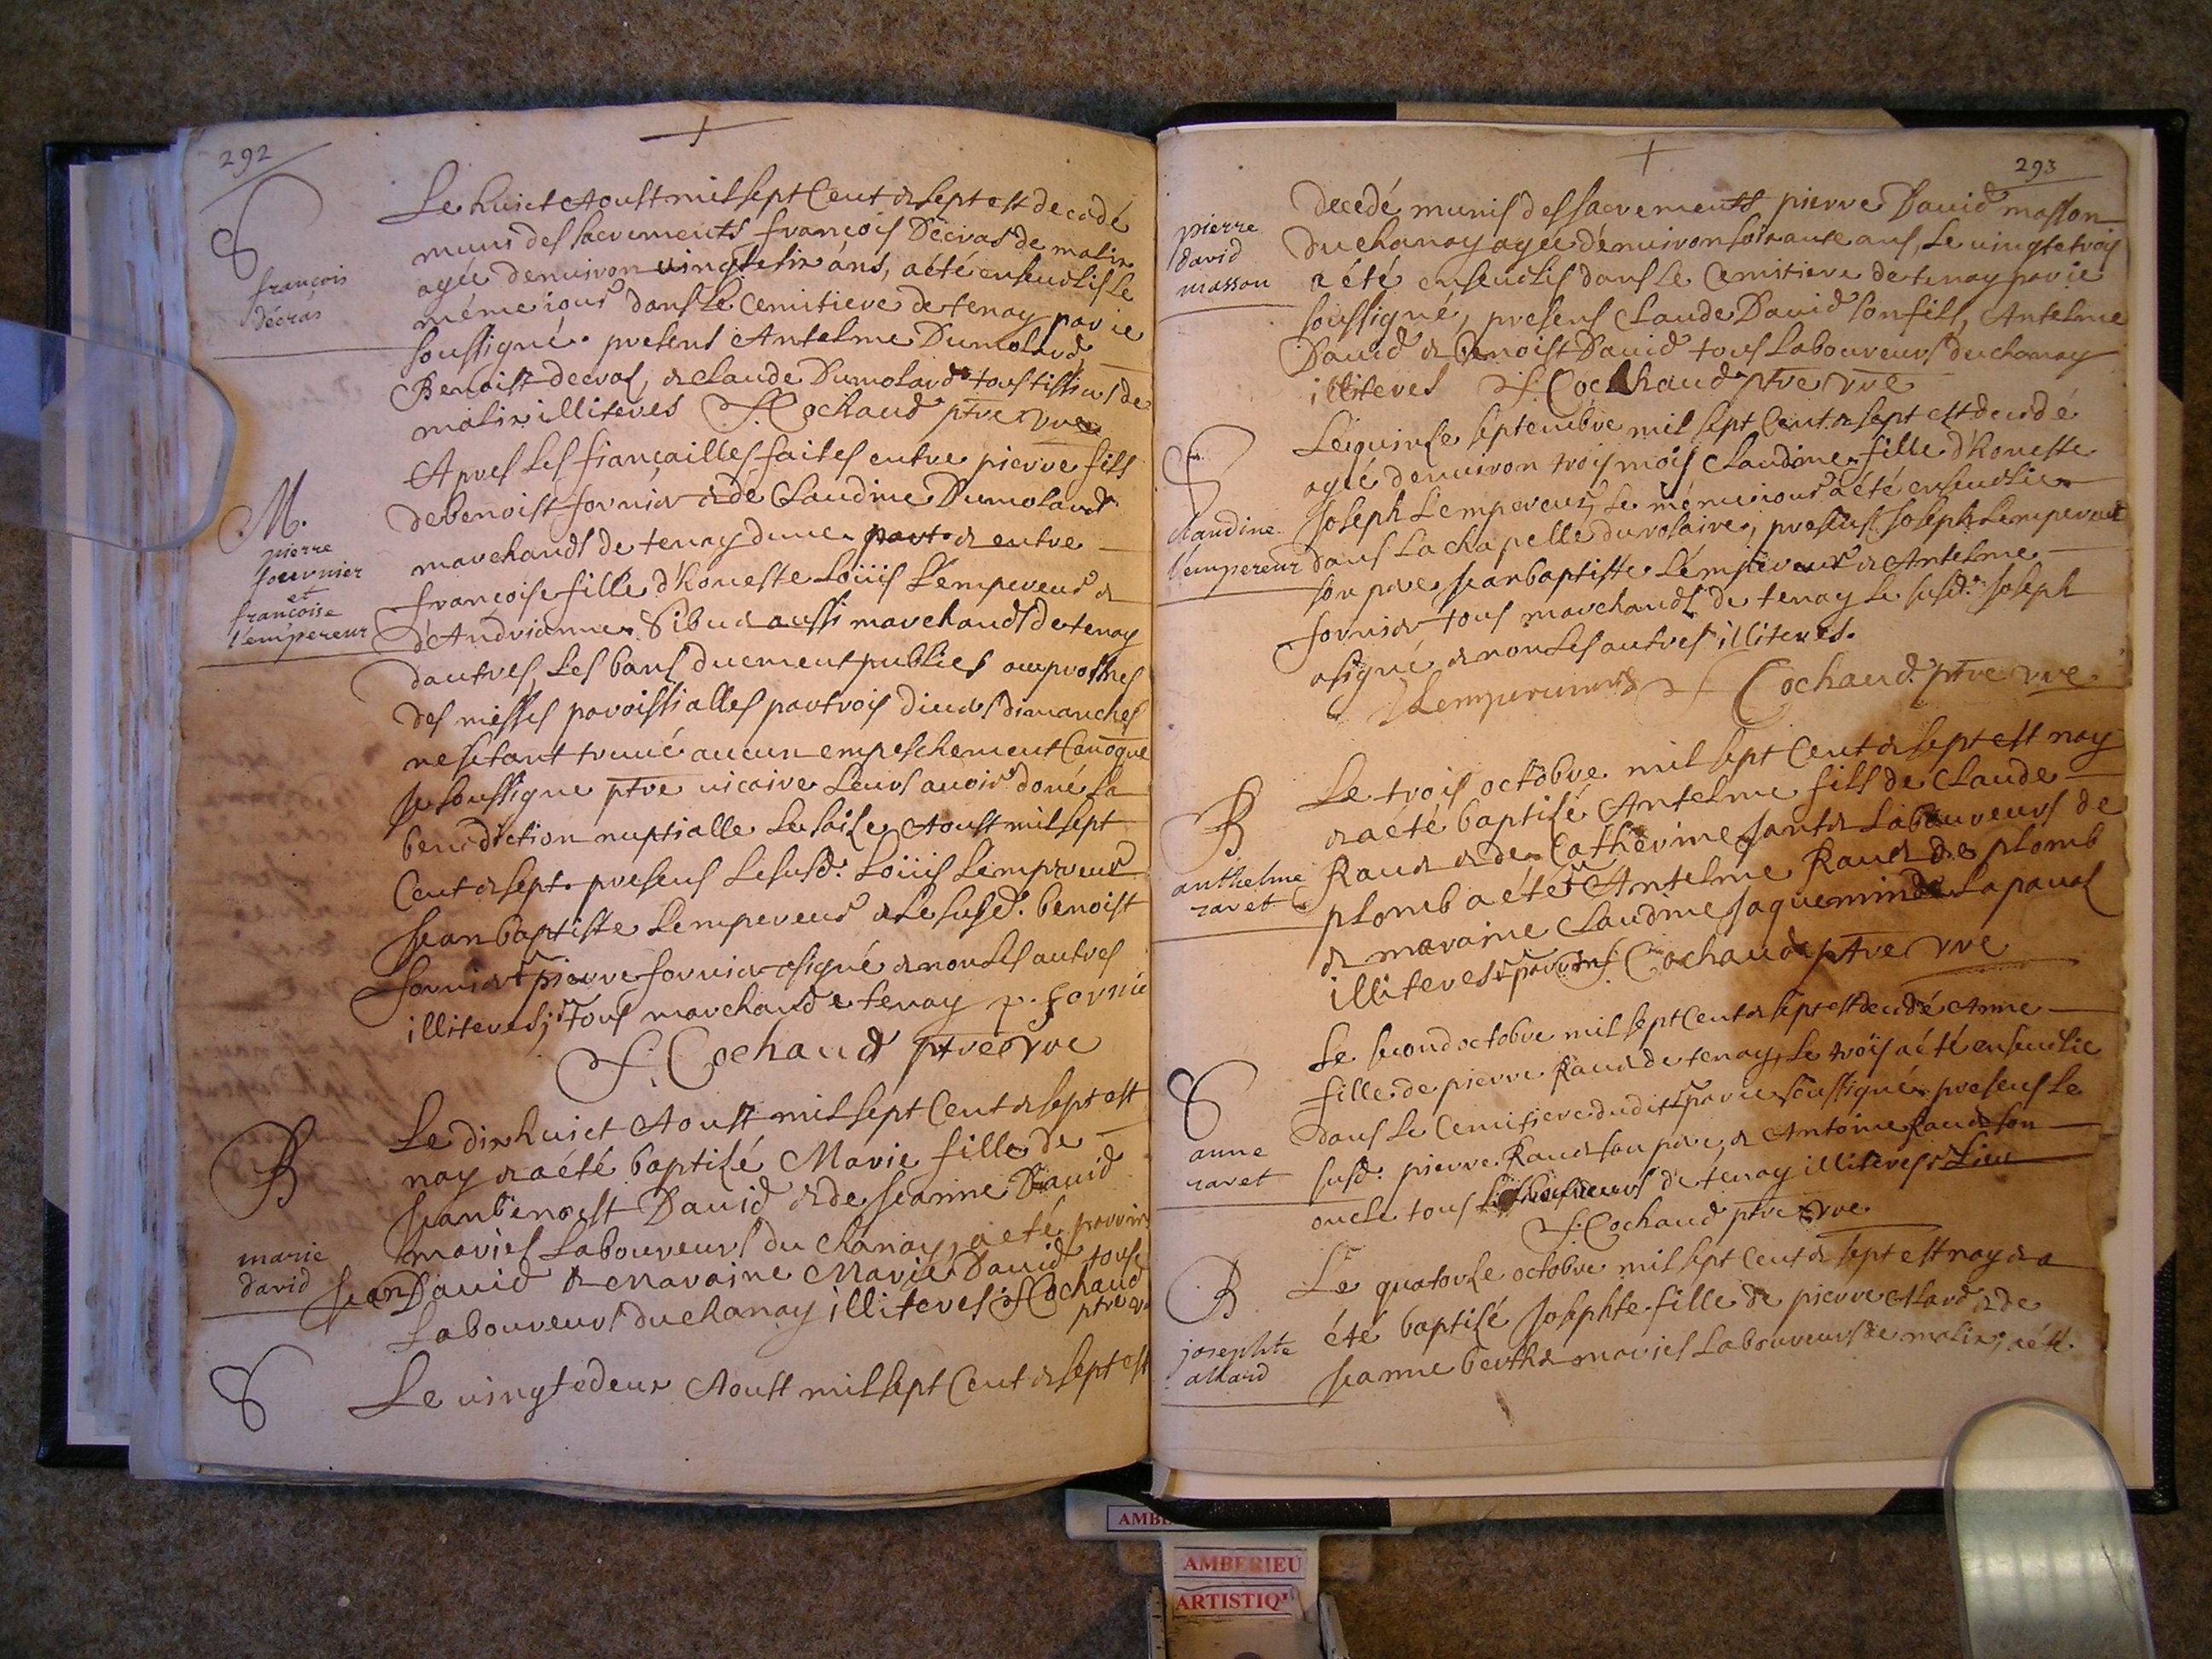 292
Le huict Aoust mil sept Cent & sept est decedé
muni des sacrements françois Décras de malix
agée denuiron uingtesix ans, a été enseuelis le
méme iour dans le Cemitiere de tenay par ie
soussigné. presens Antelme Dumolard
Benoist decras, & Claude Dumolard tous tissiers de
malix illiteres F. Cochaud ptre vre
françois
décras
Apres les fiançailles faites entre pierre fils
de benoist fornier & de Claudine Dumolard
marchands de tenay dune part & entre
françoise fille d'honeste Loüis Lempereur &
d'Andrianne Sibuet aussi marchands de tenay
dautres, Les bans duement publies aux prosnes
des messes paroissialles par trois diuers dimanches
ne sestant truué aucun empeschement Canoque
Je soussigne ptre uicaire Leurs auoir doné La
benediction nuptialle Le saise Aoust mil sept
Cent & sept. presens Le susd. Loüis Lempereur
Jean baptiste Lempereur & Le susd. benoist
fornier pierre fornier a signé & non Les autres
illiteres; tous marchand de tenay p. fornie
F. Cochaud ptre vre
M.
pierre
fournier
et
francoise
l'empereur
Le dix huict Aoust mil sept Cent & sept est
nay & a été baptisé Marie fille de
Jean benoist Dauid & de Jeanne Dauid
maries Laboureurs du chanay, a été parrin
Jean Dauid & Maraine Marie Dauid tous
Laboureurs du chanay illiteres F. Cochaud
ptre vre
B
marie
david
S
Le uingtedeux Aoust mil sept Cent & sept est
293
decedé munis des sacrements pierre Dauid masson
du chanay agée d'enuiron soixante ans, Le uingtetrois
a été enseuelis dans le Cemitiere de tenay par ie
soussigné, presens Claude Dauid son fils, Antelme
Dauid & Benoist Dauid tous Laboureurs du chanay
illiteres F. Cochaud ptre vre
pierre
david
masson
Le quinse septembre mil sept Cent & sept est decedé
agée denuiron trois mois Claudine fille d'honeste
Joseph Lempereur, Le méme iour a été enseuelie
dans La chapelle du rosaire, presens Joseph Lempereur
son pere Jean baptiste Lémpereur & Antelme
fornier tous marchands de tenay Le susd. Joseph
a signé & non Les autres illiteres.
Lempereur F Cochaud ptre vre
S
claudine
l'empereur
Le trois octobre mil sept Cent & sept est nay
& a été baptisé Antelme fils de Claude
Rauet & de Catherine Jantet Laboureurs de
plomb a été Antelme Rauet de plomb
& maraine Claudine Jaquemin de Lapaual
illiteres parrin F. Cochaud ptre vre
B
anthelme
ravet
Le second octobre mil sept Cent & sept est decedé Anne
fille de pierre Rauet de tenay, Le trois a été enseuelie
dans Le Cemitiere dudit par ie soussigné presens Le
susd. pierre Rauet son pere, & Antoine Rauet son
oncle tous Laboureurs de tenay illiteres Lieu
F. Cochaud ptre vre
S
anne
ravet
Le quatorse octobre mil sept Cent & sept est nay & a
été baptisé Josephte fille de pierre Alard & de
Jeanne berthet maries Laboureurs de malix; a été
B
josephte
allard
AMBERIEU
ARTISTIQ